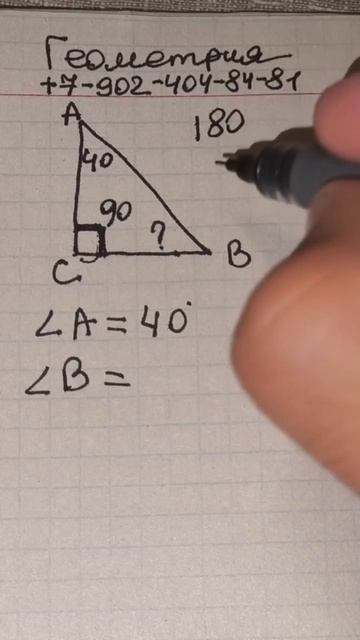 Геометрия
+7-902-404-84-81
A
180
40
90
?
C
B
∠A = 40°
∠B =